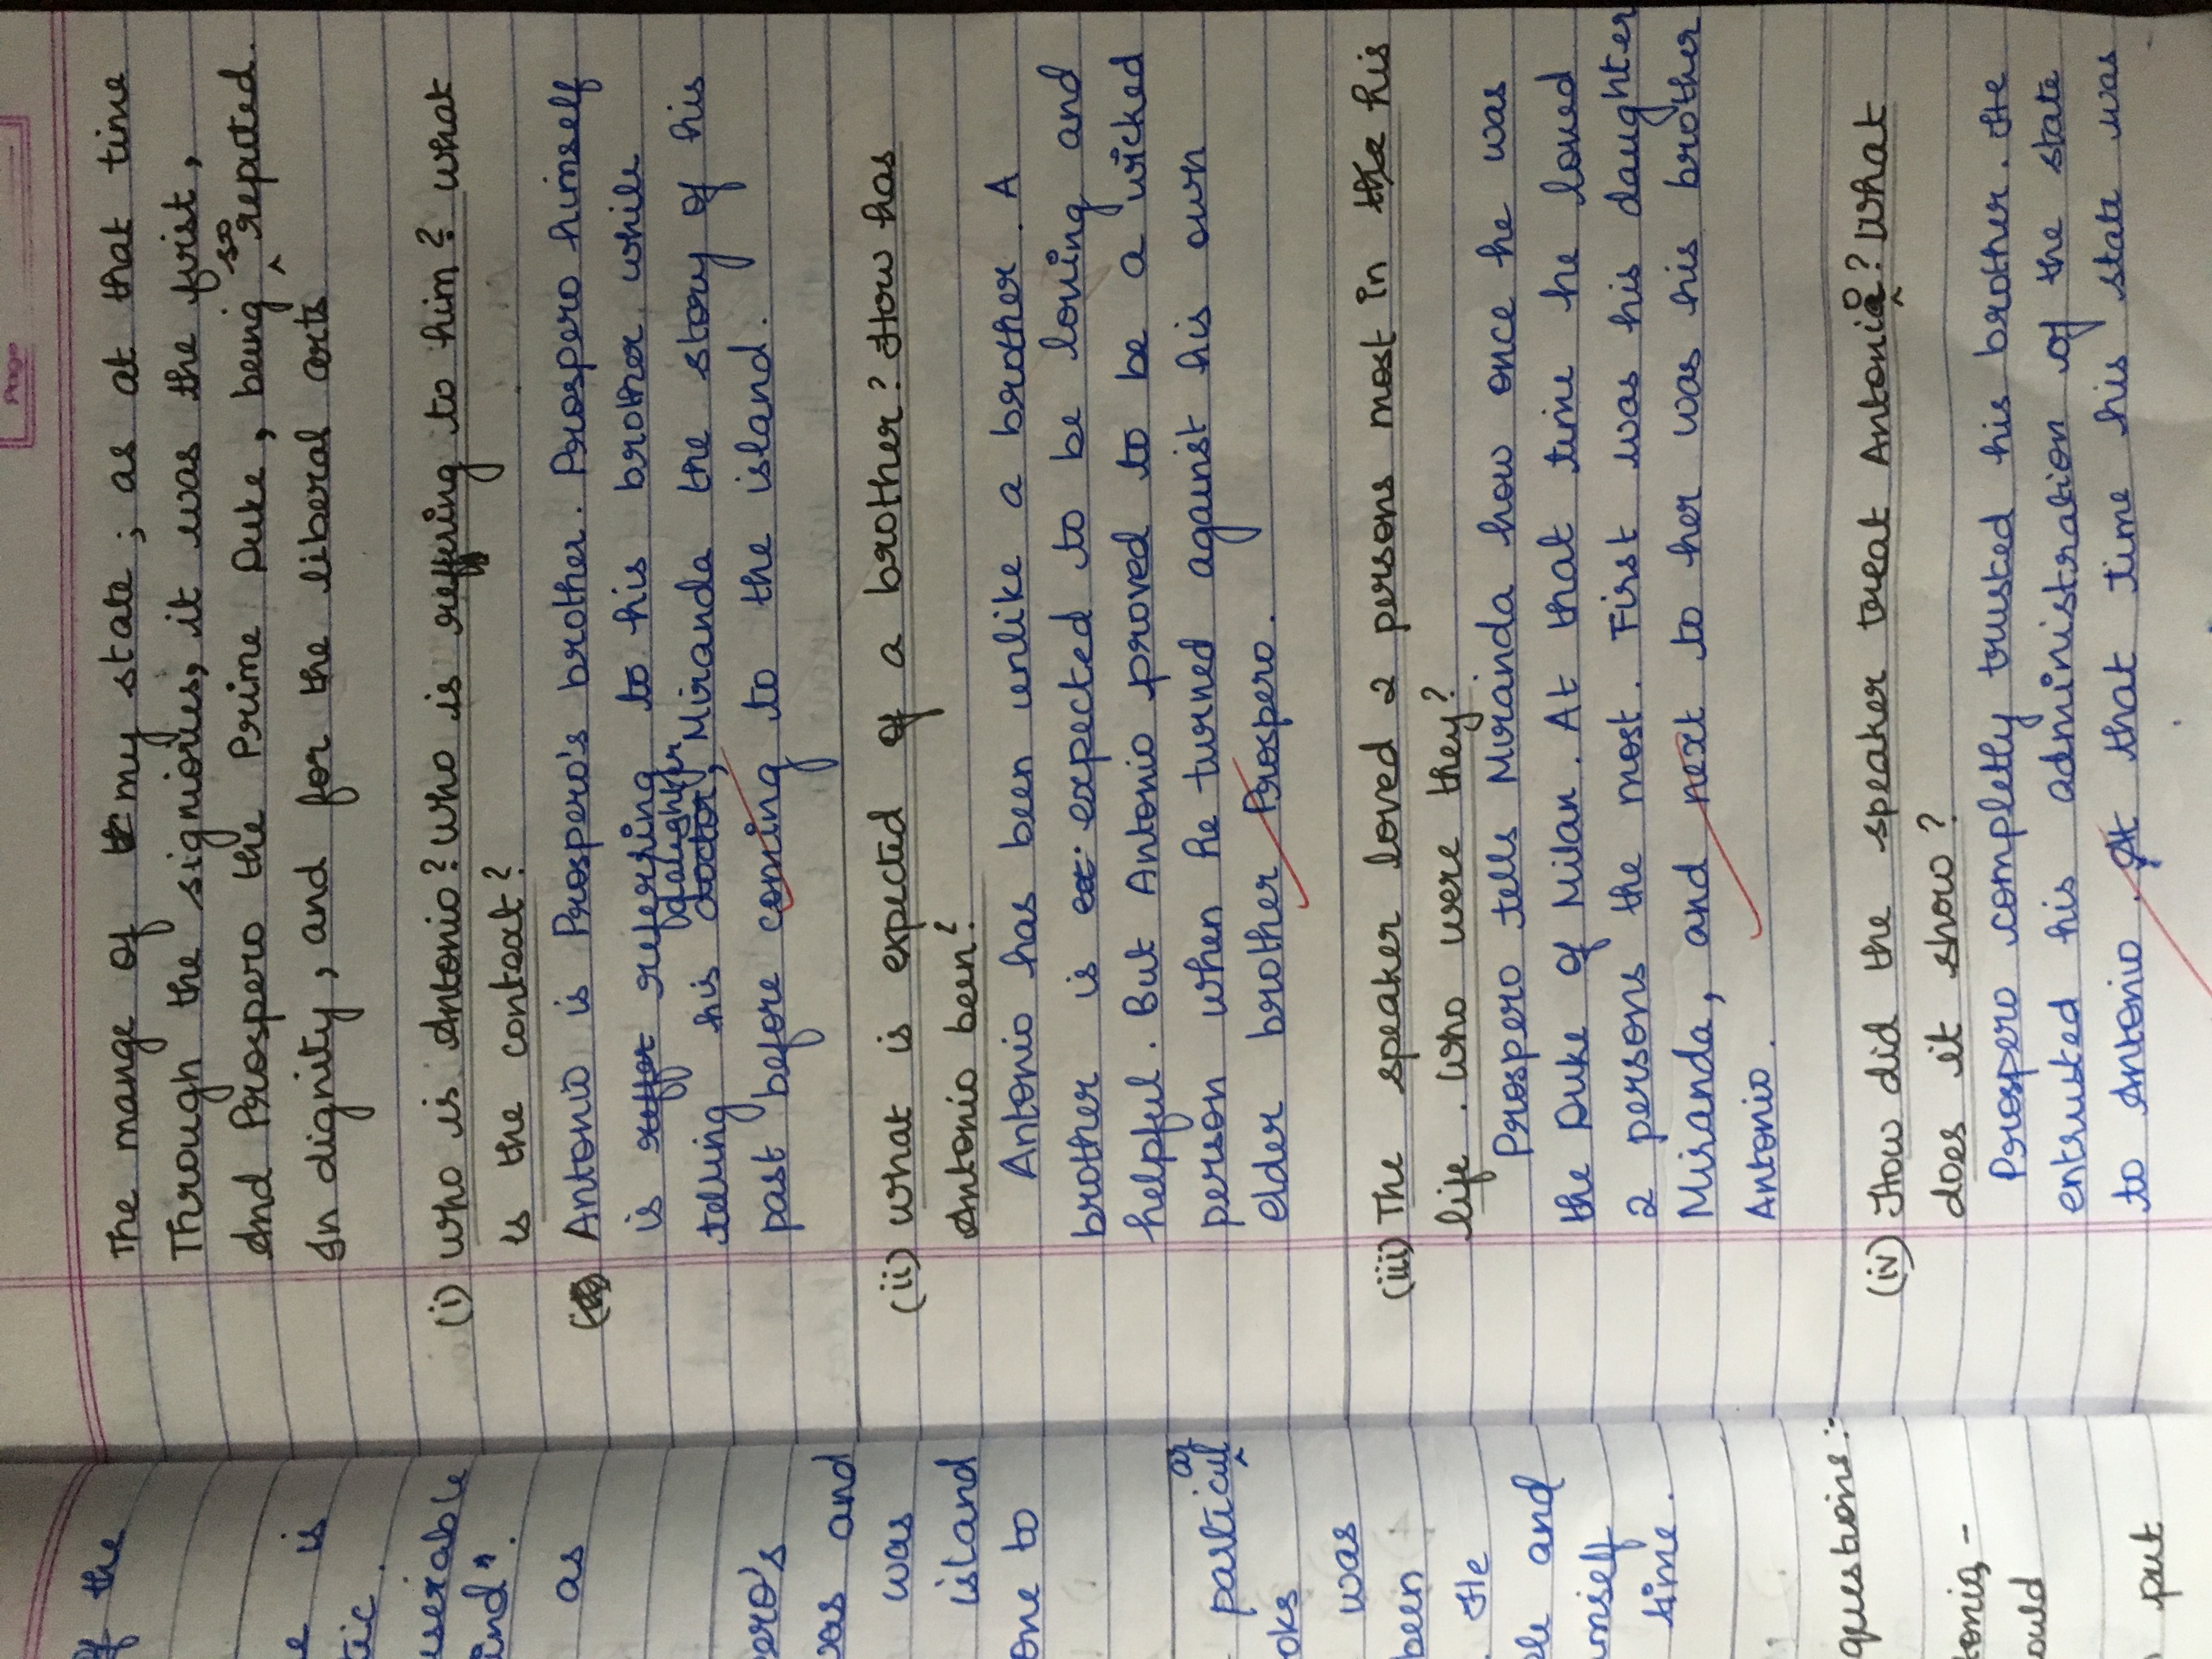 Page
of the
e is
tic.
userable
ind".
as
ero's
was and
was
island
one to
particular
oks
was
been
. He
le and
mself
time.
questions:-
tonio,-
ould
put
The mange of my state ; as at that time
Through the signiories, it was the first,
And Prospero the Prime Duke, being so reputed.
In dignity, and for the liberal arts
(i) Who is Antonio? Who is reffering to him? What
is the context?
Antonio is Prospero's brother. Prospero himself
is referring to his brother while
telling his daughter, Miranda the story of his
past before coming to the island.
(ii) What is expected of a brother? How has
Antonio been?
Antonio has been unlike a brother. A
brother is expected to be loving and
helpful. But Antonio proved to be a wicked
person when he turned against his own
elder brother Prospero.
(iii) The speaker loved 2 persons most in his
life. Who were they?
Prospero tells Miranda how once he was
the Duke of Milan. At that time he loved
2 persons the most. First was his daughter
Miranda, and next to her was his brother
Antonio.
(iv) How did the speaker treat Antonio? What
does it show?
Prospero completly trusted his brother. He
entrusted his administration of the state
to Antonio. At that time his state was